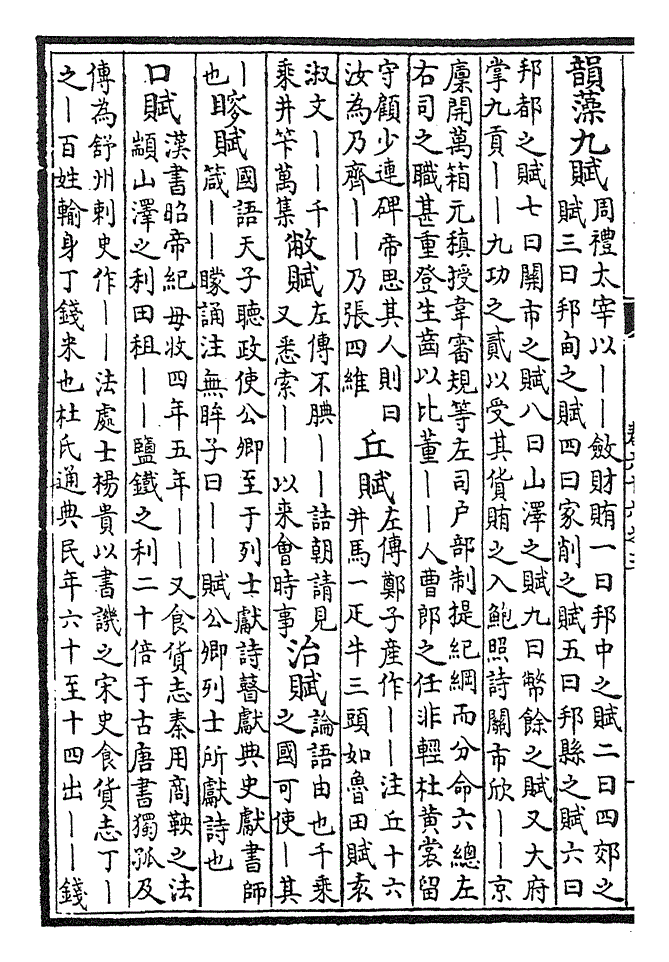 韻藻九賦周禮太宰以丨丨斂財賄一曰邦中之賦二曰四郊之
賦三曰邦甸之賦四曰家削之賦五曰邦縣之賦六曰
邦都之賦七曰關市之賦八曰山澤之賦九曰幣餘之賦又大府
掌九貢丨丨九功之貳以受其貨賄之入鮑照詩關市欣丨丨京
廩開萬箱元稹授韋審規等左司戶部制提紀綱而分命六總左
右司之職甚重登生齒以比董丨丨人曹郎之任非輕杜黄裳留
守顧少連碑帝思其人則曰
汝為乃齊丨丨乃張四維
丘賦左傳鄭子產作丨丨注丘十六
井馬一疋牛三頭如魯田賦袁
淑文丨丨千
乘井笇萬集
敝賦左傳不腆丨丨詰朝請見
又悉索丨丨以来會時事
治賦論語由也千乘
之國可使丨其
丨
也
瞍賦國語天子聽政使公卿至于列士獻詩瞽獻典史獻書師
箴丨丨矇誦注無眸子曰丨丨賦公卿列士所獻詩也
口賦漢書昭帝紀毋收四年五年丨丨又食貨志秦用商鞅之法
顓山澤之利田租丨丨鹽鐵之利二十倍于古唐書獨孤及
傳為舒州刺史作丨丨法處士楊貴以書譏之宋史食貨志丁丨
之丨百姓輸身丁錢米也杜氏通典民年六十至十四出丨丨錢